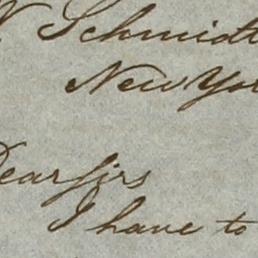 Schmidt
New Yor
Dear sirs
I have to